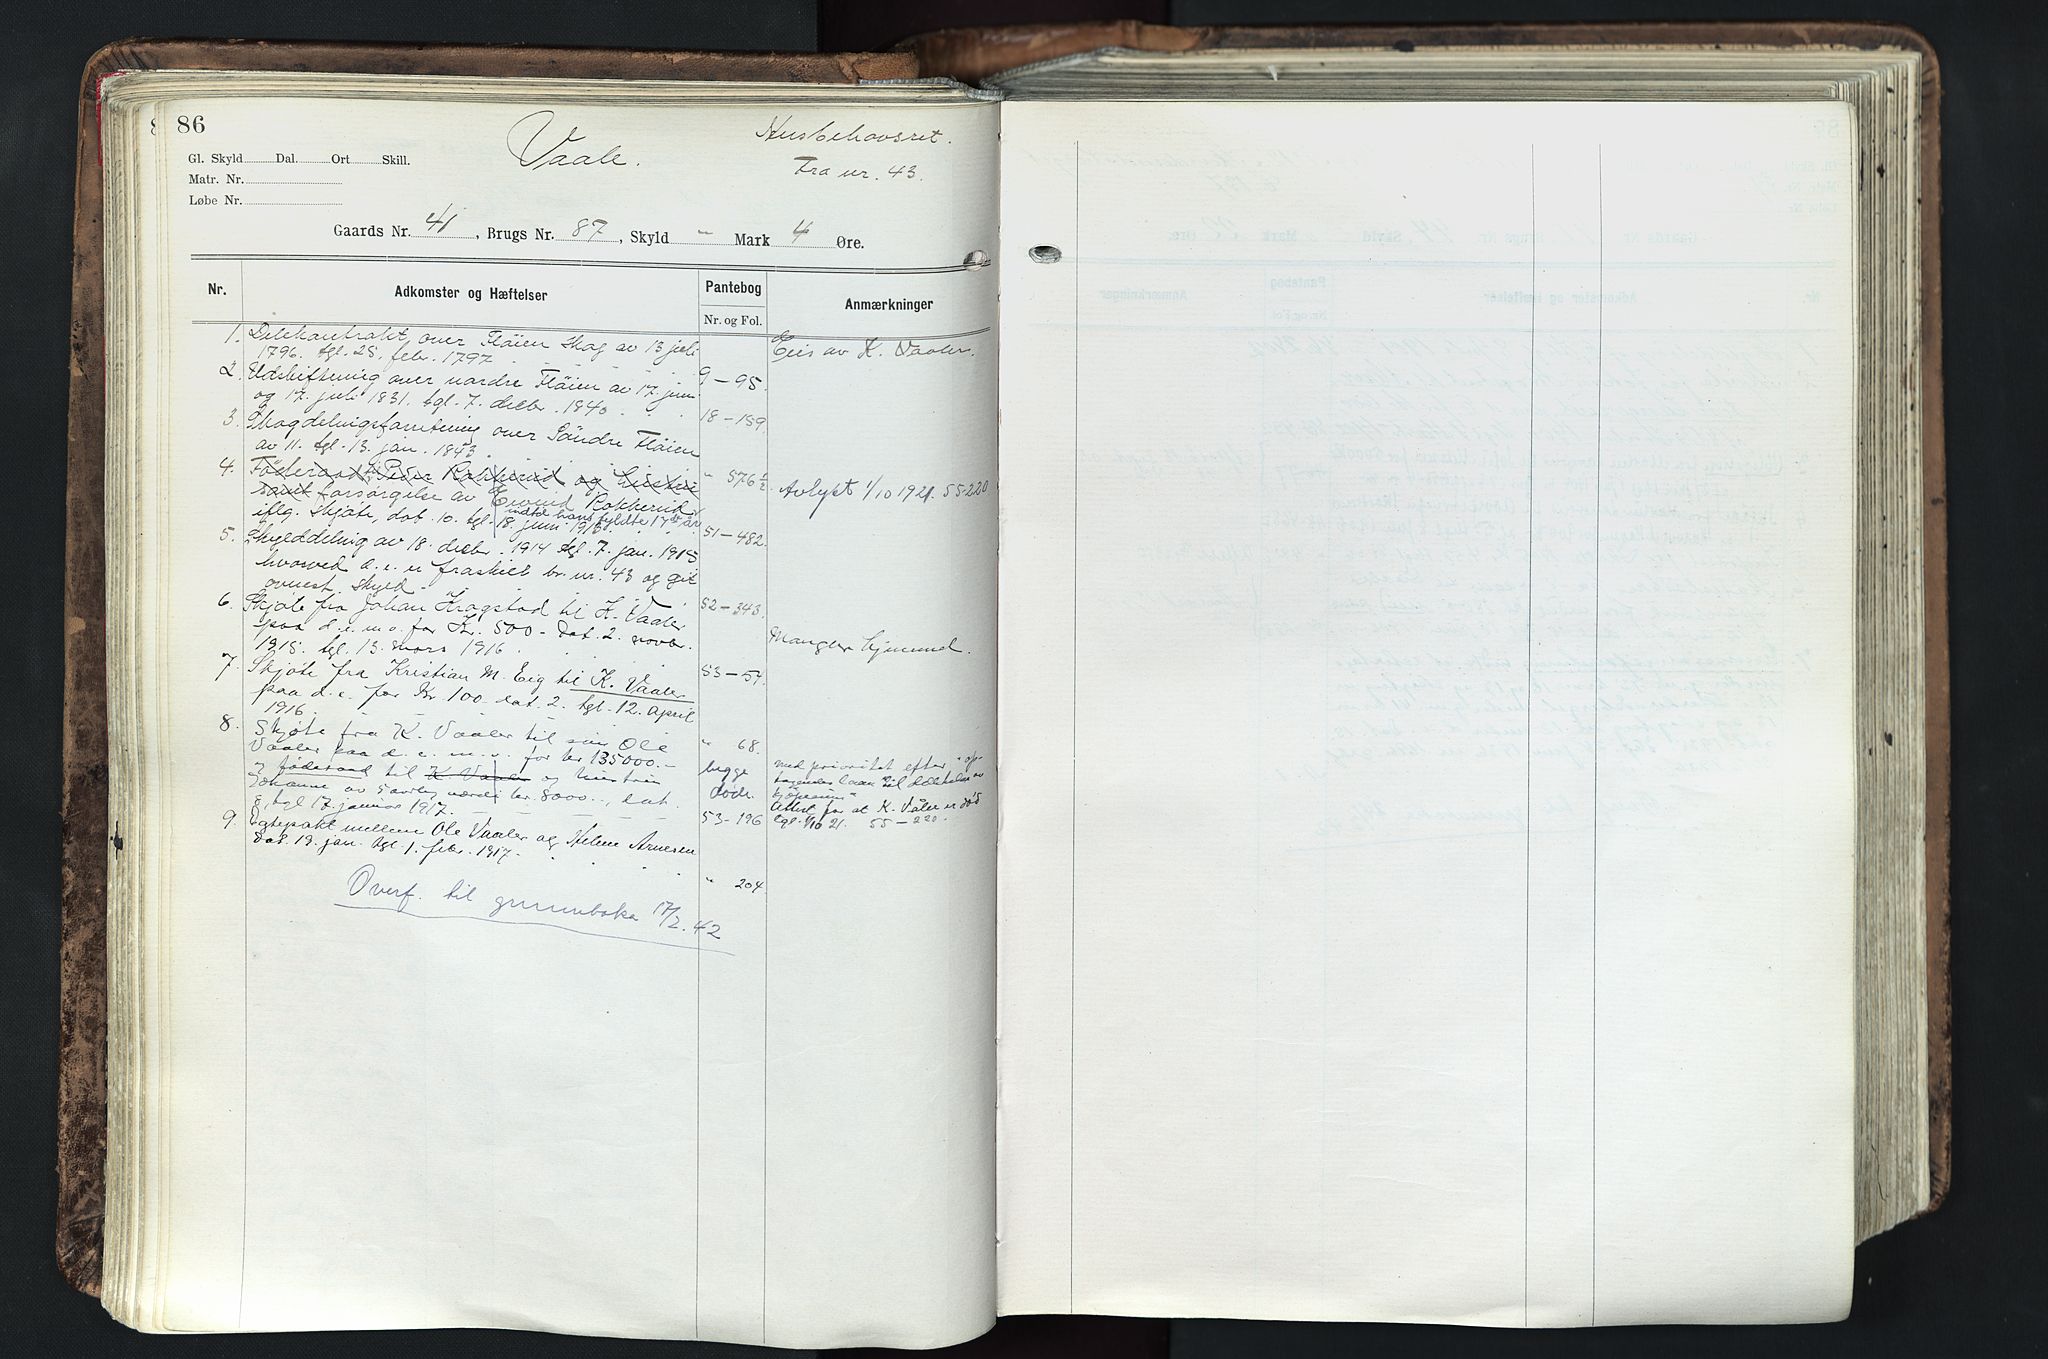 86
Vaale.
Husbehovsret.
Fra nr. 43.
Gl. Skyld Dal. Ort Skill.
Matr. Nr.
Løbe Nr.
Gaards Nr. 41, Brugs Nr. 87, Skyld " Mark 4 Øre.
Nr. Adkomster og Hæftelser Pantebog Anmærkninger
Nr. og Fol.
1. Delekontrakt over Fløien skog av 13 juli Eies av K. Vaaler.
1796. tgl. 28. febr. 1797
2. Udskiftning over nordre Fløien av 17. juni 9 – 95.
og 17. juli 1831. tgl. 7. decbr. 1840 18 – 159
3. Skogdelningsforretning over Søndre Fløien
av 11. tgl. 13. jan. 1843
4. Føderaad til Peder Rakkerud og hustru " 576 1/2
samt forsørgelse av Eivind Rakkerud Avlyst 1/10 1921. 55-220
indtil hans fyldte 17de år
iflg. skjøte, dat. 10. tgl. 18. juni 1913 51 – 482.
5. Skylddeling av 18. decbr. 1914 tgl. 7. jan. 1915
hvorved d. e. er fraskilt br. nr. 43 og git
ovenst. skyld 52 – 343.
6. Skjøte fra Johan Kragstad til K. Vaaler
paa d. e. m. v. for Kr. 500 – dat. 2. novbr. Mangler hjemmel.
1915. tgl. 13. mars 1916.
7. Skjøte fra Kristian M. Eig til K. Vaaler 53 – 57.
paa d. e. for Kr. 100. dat. 2. tgl. 12. april
1916
8. Skjøte fra K. Vaaler til søn Ole " 68.
Vaaler paa d. e. m. v. for kr 135000.–
og føderaad til K Vaaler og hustru begge med prioritet efter "op-
Johanne av 5 aarlig værdi kr. 8000.–, dat. døde. tagendes laan til dækkelse av
kjøpesum"
8, tgl 17. januar 1917. 53 – 196 Attest for at K. Våler er død
tgl. 1/10 21. 55 – 220.
9. Egtepakt mellem Ole Vaaler og Helene Arnesen
dat. 19. jan. tgl. 1. febr. 1917. " 204
Overf. til grunnboka 17/2. 42